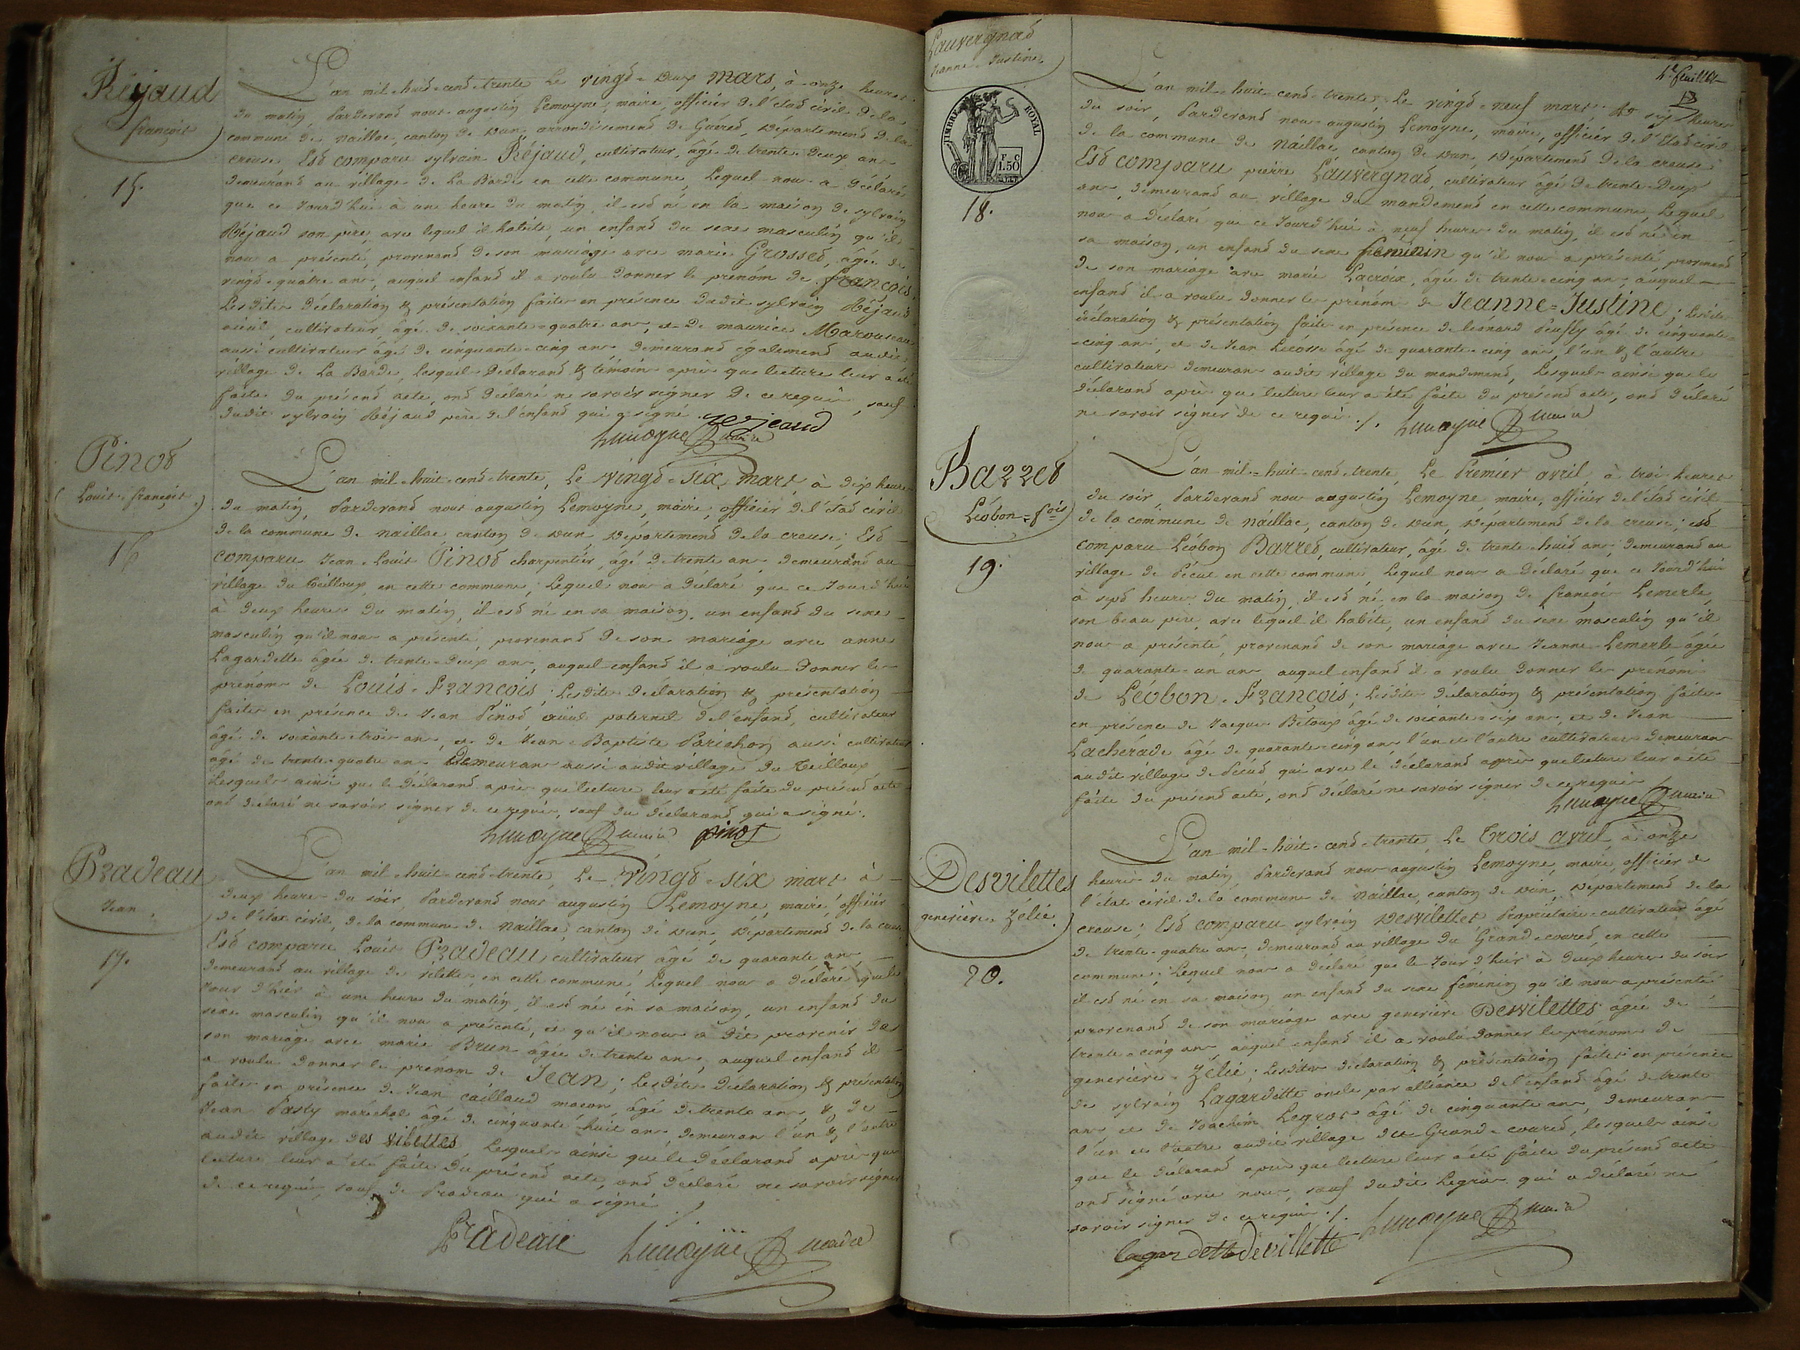 Réjaud
françois
15.
L'an mil-huit-cend-trente Le vingd-deux mars, à onze heures
du matin, Pardevand nous augustin Lemoyne, maire, officier de l'étad civil de la
commune de naillac, canton de Dun, arrondissemend de Guéred, Départemend de la
creuse Esd comparu sylvain Réjaud, cultivateur, âgé de trente-deux ans
demeurand au village de La Borde en cette commune, Lequel nous a déclaré
que ce Jourd'hui à une heure du matin, il esd né en la maison de sylvain
Réjaud son père, avec lequel il habite, un enfand du sexe masculin qu'il
nous a présenté, provenand de son mariage avec marie Grosset, âgée de
vingd-quatre ans, auquel enfand il a voulu donner le prénom de françois.
Lesdites déclaration & présentation faites en présence dudit sylvain Réjaud
aïeul, cultivateur âgé de soixante-quatre ans, et de maurice Marouseau
aussi cultivateur âgé de cinquante-cinq ans demeurand égalemend audit
village de La Borde, lesquels déclarand & témoins après que lecture leur a été
faite du présend acte, ond déclaré ne savoir signer de ce requis, sauf
dudit sylvain Réjaud père de l'enfand qui a signé.
rejeaud
Lemoyne maire
Pinod
Louis-françois
16
L'an mil-huit-cend-trente, Le vingd-six mars à dix heures
du matin, Pardevand nous augustin Lemoyne, maire, officier de l'étad civil
de la commune de naillac canton de Dun, Départemend de la creuse; Esd
comparu Jean-Louis Pinod charpentier, âgé de trente ans, demeurand au
village du Teilloux, en cette commune; Lequel nous a déclaré que ce Jourd'hui
à deux heures du matin, il esd né en sa maison, un enfand du sexe
masculin qu'il nous a présenté, provenand de son mariage avec anne
Lagardette âgée de trente-deux ans, auquel enfand il a voulu donner les
prénoms de Louis-François; Lesdites déclaration & présentation
faites en présence de Jean Pinod aïeul paternel de l'enfand, cultivateur
âgé de soixante-trois ans, et de Jean-Baptiste Parichon aussi cultivateur
âgé de trente-quatre ans Demeurans aussi audit village du Teilloux
Lesquels ainsi que le déclarand après que lecture leur a été faite du présend acte
ond déclaré ne savoir signer de ce requis, sauf du déclarand qui a signé.
Lemoyne maire pinot
Pradeau
Jean.
17.
L'an mil-huit-cend-trente, Le Vingd-six mars à
deux heures du soir, Pardevand nous augustin Lemoyne, maire, officier
de l'étad civil, de la commune de naillac, canton de Dun, Départemend de la creuse
Esd comparu Louis Pradeau cultivateur âgé de quarante ans,
demeurand au village des vilettes, en cette commune, Lequel nous a déclaré que le
Jour d'hier à une heure du matin, il esd né en sa maison, un enfand du
sexe masculin qu'il nous a présenté, et qu'il nous a dit provenir de
son mariage avec marie Brun âgée de trente ans, auquel enfand il
a voulu donner le prénom de Jean; Lesdites déclaration & présentation
faites en présence de Jean caillaud maçon, âgé de trente ans, & de
Jean Pasty maréchal âgé de cinquante-huit ans, demeurans l'un & l'autre
audit village des vilettes Lesquels ainsi que le déclarand après que
lecture leur a été faite du présend acte, ond déclaré ne savoir signer
de ce requis, sauf de Pradeau qui a signé ./
Pradeau Lemoyne maire
Lauvergnad
Jeanne-Justine
TIMBRE ROYAL
1.50
18.
4e feuillet
13
L'an mil-huit-cend-trente, Le vingd-neuf mars, à six heures
du soir, Pardevand nous augustin Lemoyne, maire, officier de l'étad civil
de la commune de naillac, canton de Dun, Départemend de la creuse;
Esd comparu pierre Lauvergnad, cultivateur âgé de trente-deux
ans, demeurand au village du mandemend en cette commune, Lequel
nous a déclaré que ce Jourd'hui à neuf heures du matin, il esd né en
sa maison, un enfand du sexe féminin qu'il nous a présenté, provenand
de son mariage avec marie Lacroix, âgée de trente-cinq ans, auquel
enfand il a voulu donner les prénoms de Jeanne-Justine; Lesdites
déclaration & présentation faites en présence de Léonard âgé de cinquante-
-cinq ans, et de Jean Lecosse âgé de quarante-cinq ans, l'un & l'autre
cultivateurs demeurans audit village du mandemend, Lesquels ainsi que le
déclarand après que lecture leur a été faite du présend acte, ond déclaré
ne savoir signer de ce requis ./. Lemoyne maire
Barred
Léobon-fois
19.
L'an mil-huit-cend-trente, Le Premier avril, à trois heures
du soir, Pardevand nous augustin Lemoyne, maire, officier de l'étad civil
de la commune de naillac, canton de Dun, Départemend de la creuse; esd
comparu Léobon Barred, cultivateur, âgé de trente-huid ans, demeurand au
village de Pécut en cette commune, Lequel nous a déclaré que ce Jourd'hui
à sept heures du matin, il esd né en la maison de françois Lemerle,
son beau père, avec lequel il habite, un enfand du sexe masculin qu'il
nous a présenté, provenand de son mariage avec Jeanne Lemerle âgée
de quarante-un ans, auquel enfand il a voulu donner les prénoms
de Léobon-François; Lesdites déclaration & présentation faites
en présence de Jacques Betoux âgé de soixante-six ans, et de Jean
Lacherade âgé de quarante-cinq ans l'un et l'autre cultivateurs demeurans
audit village de Pécud qui avec le déclarand après que lecture leur a été
faite du présend acte, ond déclaré ne savoir signer de ce requis
Lemoyne maire
Desvilettes
geneviève-Zélie
20.
L'an mil-huit-cend-trente, Le Trois avril à onze
heures du matin Pardevand nous augustin Lemoyne, maire officier de
l'état civil de la commune de Naillac, canton de Dun, Département de la
creuse; Esd comparu sylvain Desvilettes Propriétaire-cultivateur âgé
de trente-quatre ans, demeurand au village du Grand-coured, en cette
commune; Lequel nous a déclaré que le Jour d'hier à deux heures du soir
il esd né en sa maison un enfand du sexe féminin qu'il nous a présenté
provenand de son mariage avec geneviève Desvilettes âgée de
trente-cinq ans auquel enfand il a voulu donner les prénoms de
geneviève-Zélie; Lesdites déclaration & présentation faites en présence
de sylvain Lagardette oncle par alliance de l'enfand âgé de trente
ans et de Joachim Legros âgé de cinquante ans, demeurans
l'un et l'autre audit village du Grand-coured, lesquels ainsi
que le déclarand après que lecture leur a été faite du présend acte
ond signé avec nous, sauf dudit Legros qui a déclaré ne
savoir signer de ce requis ./. Lemoyne maire
lagardette devillette